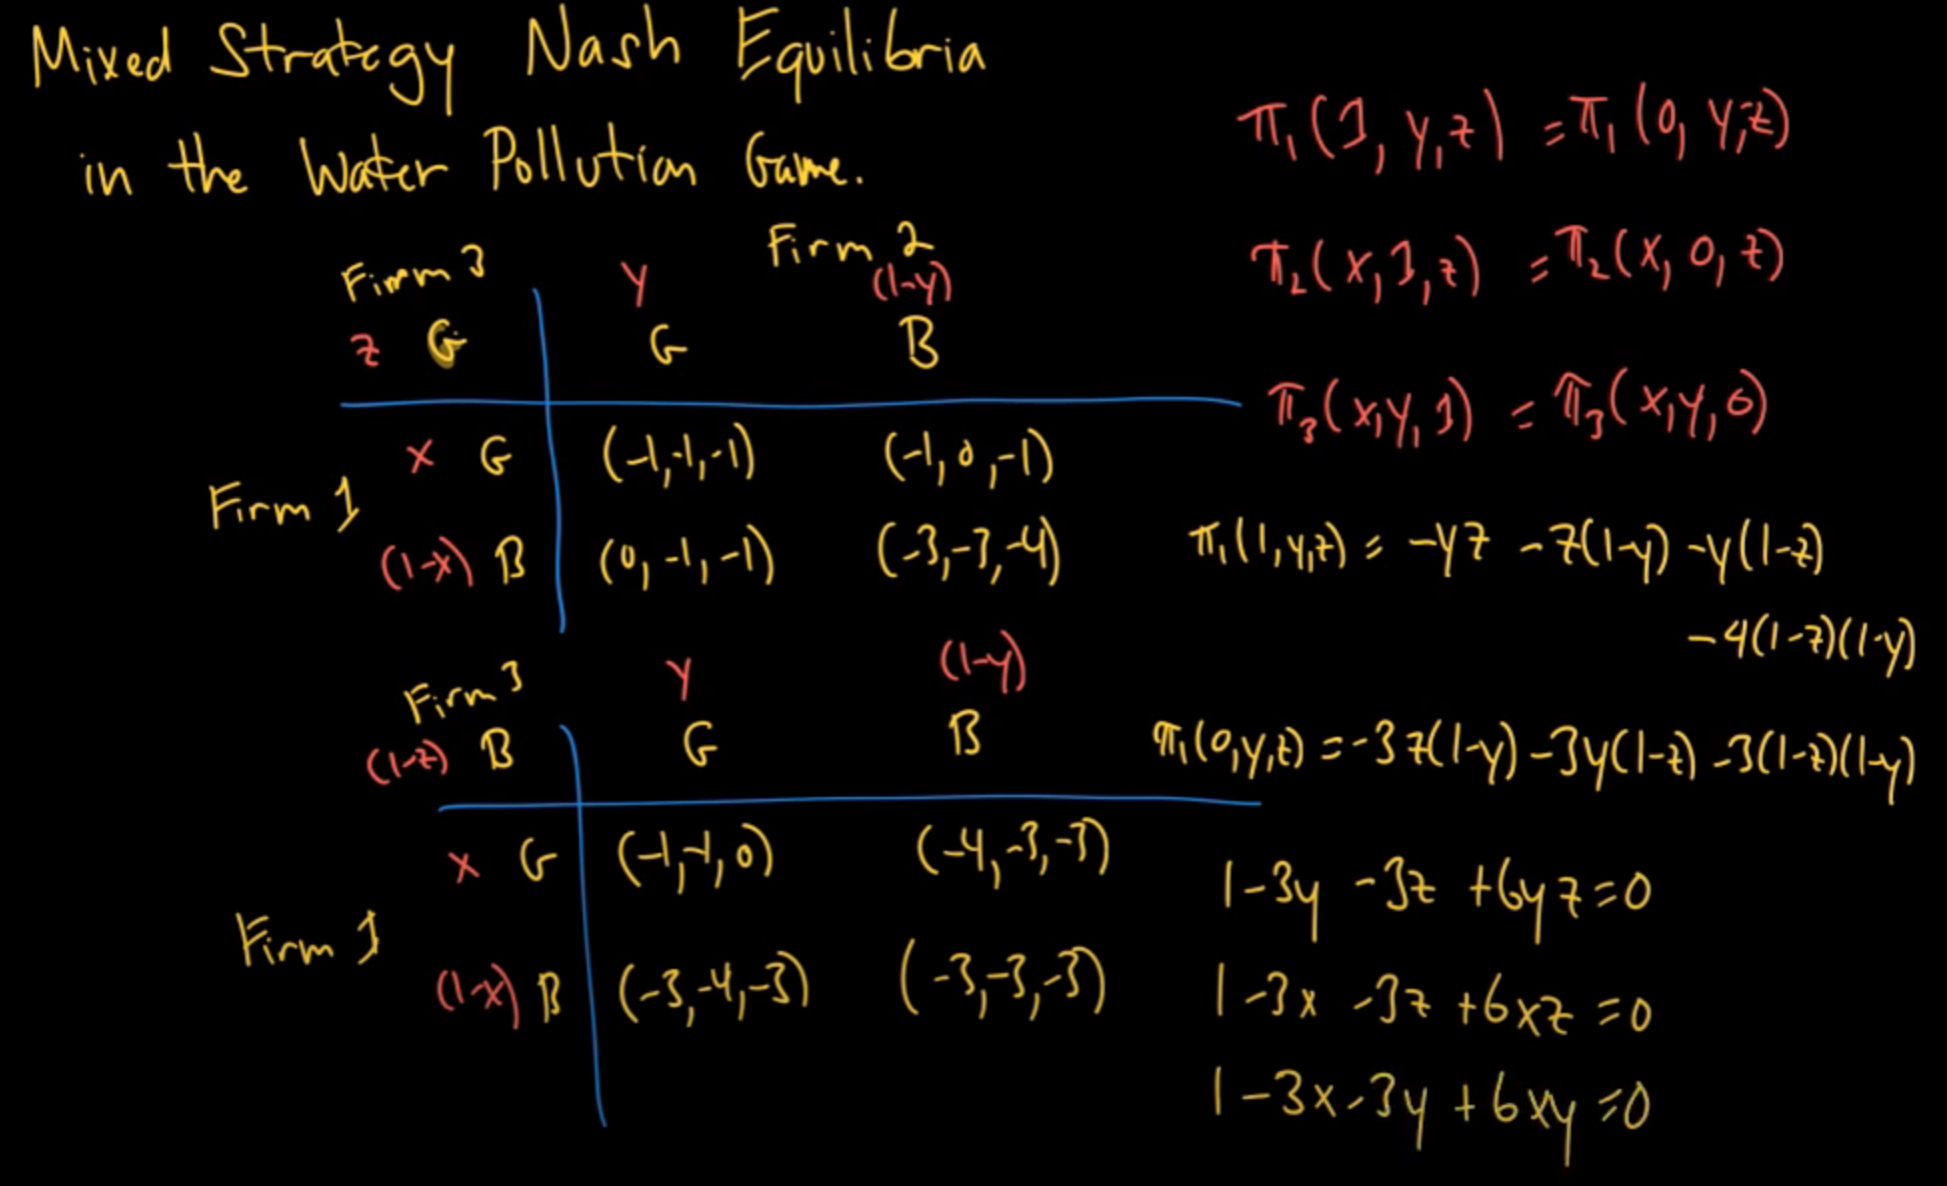 Mixed Strategy Nash Equilibria
in the Water Pollution Game.
Firm 3 Firm 2
y (1-y)
z G G B
x G (-1,-1,-1) (-1,0,-1)
Firm 1
(1-x) B (0,-1,-1) (-3,-3,-4)
Firm 3 y (1-y)
(1-z) B G B
x G (-1,-1,0) (-4,-3,-3)
Firm 1
(1-x) B (-3,-4,-3) (-3,-3,-3)
π₁(1,y,z) = π₁(0,y,z)
π₂(x,1,z) = π₂(x,0,z)
π₃(x,y,1) = π₃(x,y,0)
π₁(1,y,z) = -yz -z(1-y) -y(1-z)
-4(1-z)(1-y)
π₁(0,y,z) = -3z(1-y) -3y(1-z) -3(1-z)(1-y)
1-3y -3z +6yz=0
1-3x -3z +6xz=0
1-3x-3y+6xy=0